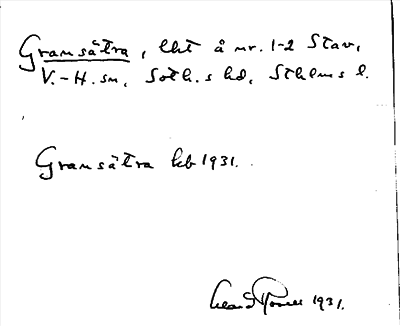 Gransätra, lht å nr. 1-2 Stav,
V.-H. sn, Soth.s hd, Sthlms l.
Gransätra kb 1931.
1931.